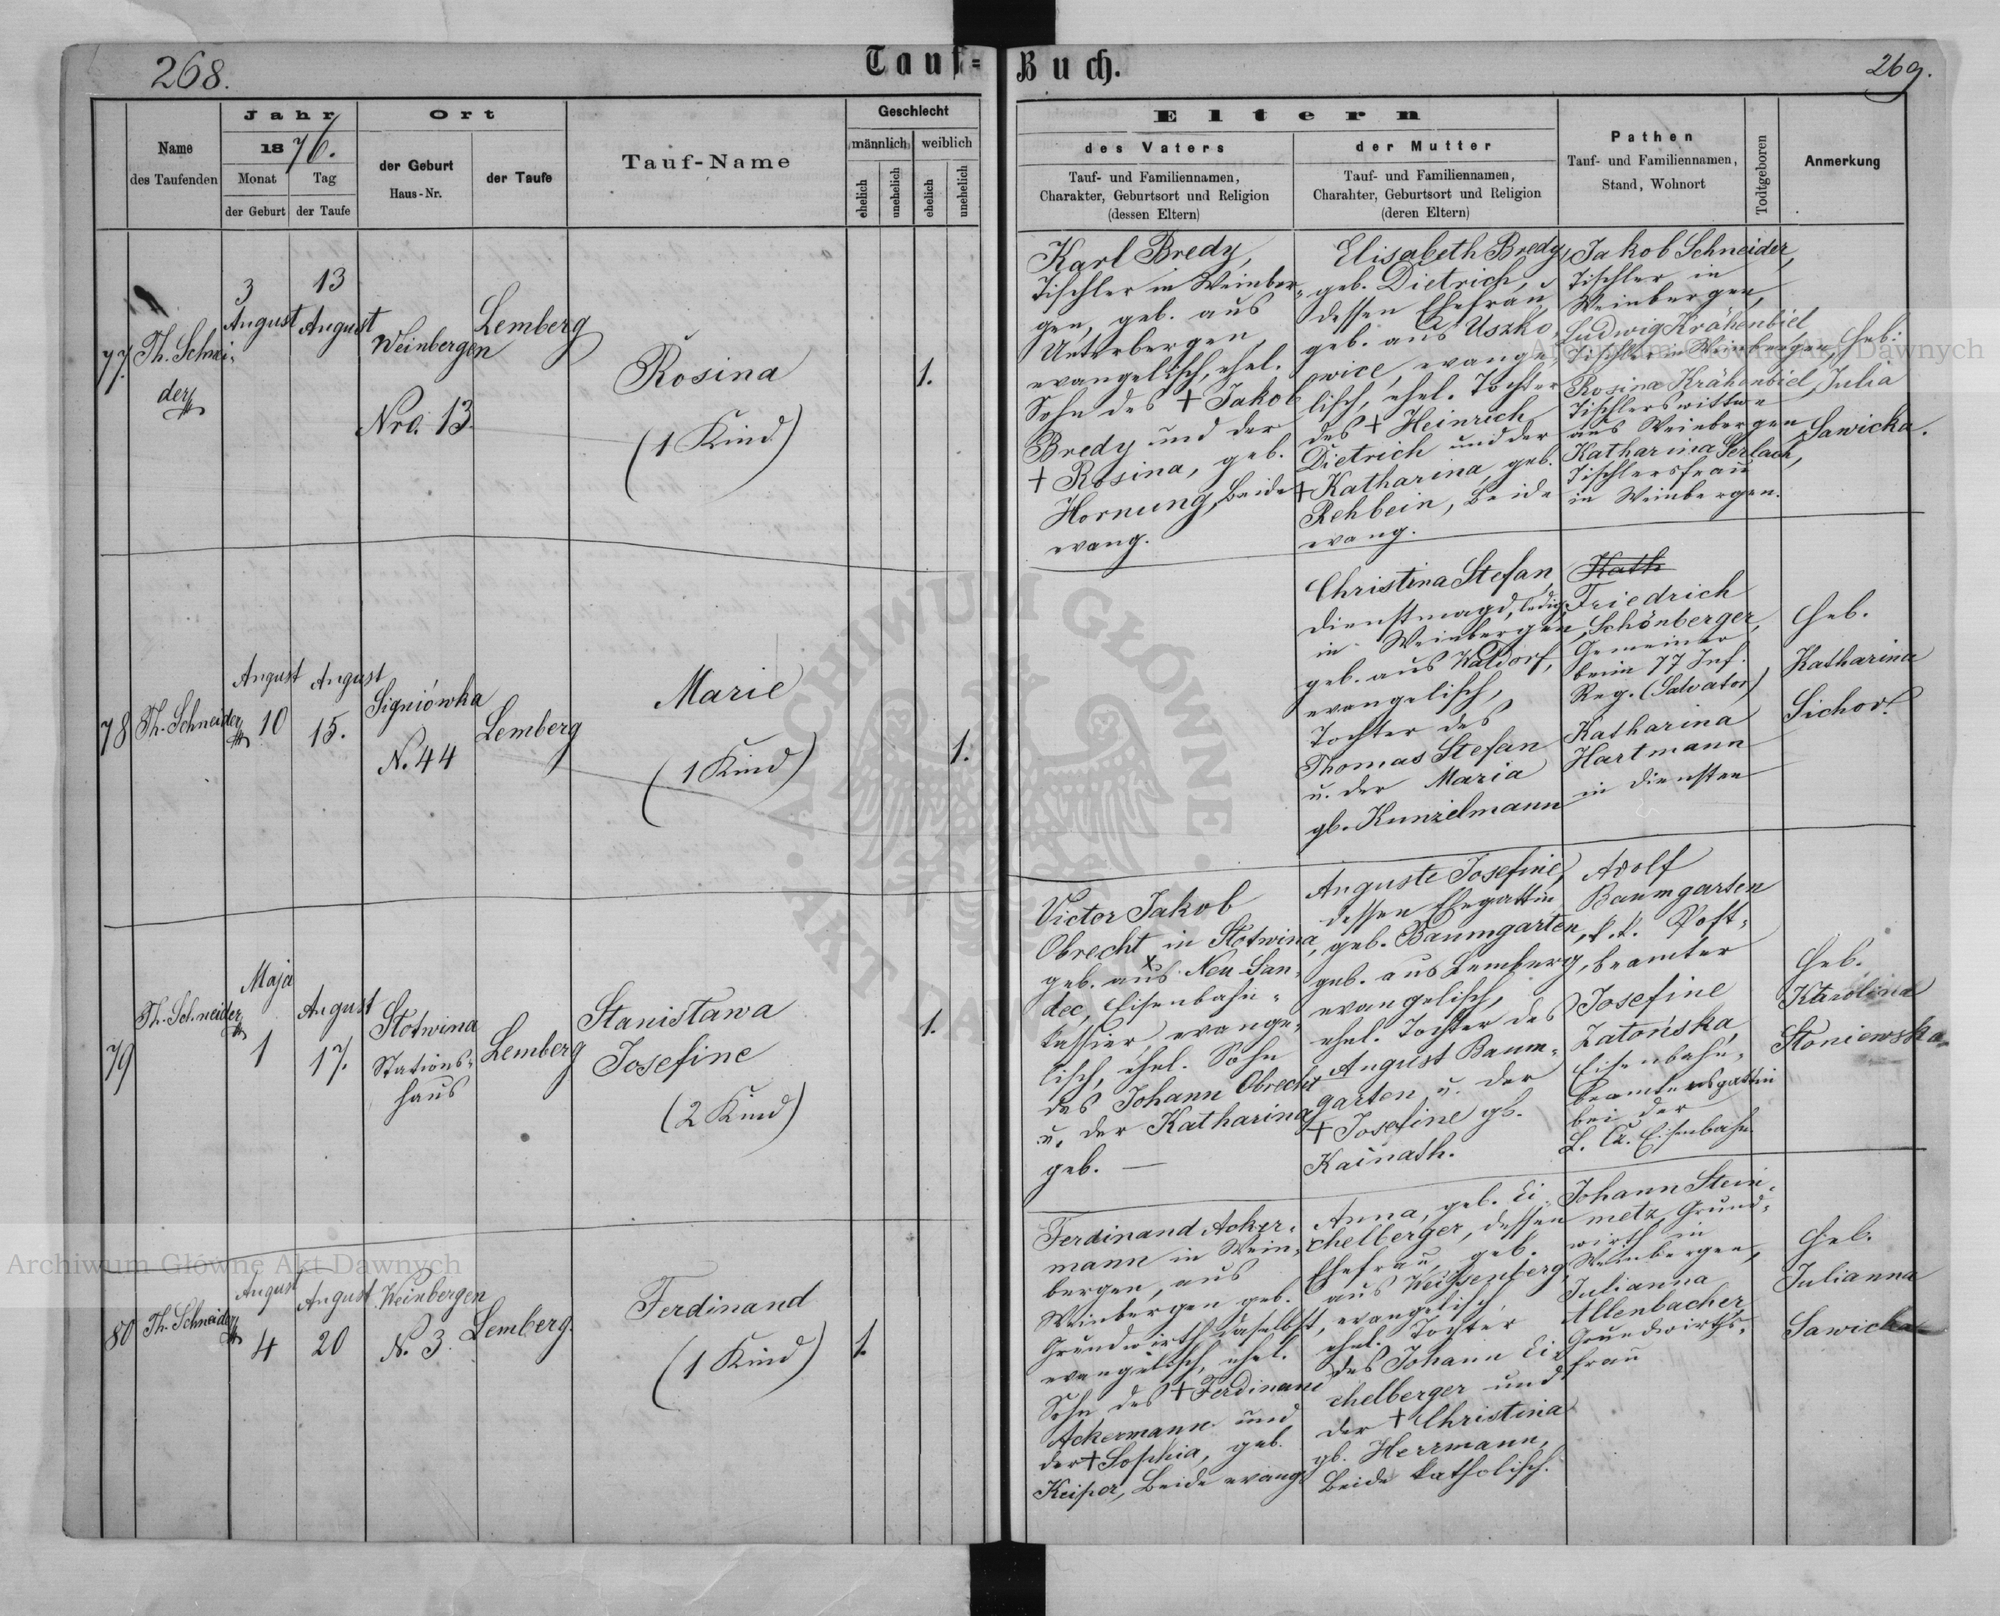 268.
Tauf-
Buch.
269.
Name
des Taufenden
Jahr
1876.
Monat
der Geburt
Tag
der Taufe
Ort
der Geburt
Haus-Nr.
der Taufe
Tauf-Name
Geschlecht
männlich
weiblich
ehelich
unehelich
ehelich
unehelich
Eltern
des Vaters
Tauf- und Familiennamen,
Charakter, Geburtsort und Religion
(dessen Eltern)
der Mutter
Tauf- und Familiennamen,
Charahter, Geburtsort und Religion
(deren Eltern)
Pathen
Tauf- und Familiennamen,
Stand, Wohnort
Todtgeboren
Anmerkung
77.
Th. Schnei-
der
3
August
13
August
Weinbergen
Nro. 13.
Lemberg
Rosina
(1 Kind)
1.
Karl Bredy,
Tischler in Weinber-
gen, geb. aus
Unterbergen,
evangelisch, ehel.
Sohn des + Jakob
Bredy und der
+ Rosina, geb.
Hornung, beide
evang.
Elisabeth Bredy,
geb. Dietrich,
dessen Ehefrau
geb. aus Uszko-
wice, evange-
lisch, ehel. Tochter
des + Heinrich
Dietrich und der
+ Katharina, geb.
Rehbein, beide
evang.
Jakob Schneider,
Tischler in
Weinbergen,
Ludwig Krähenbiel
Tischler in Weinbergen
Rosina Krähenbiel,
Tischlerswittwe
aus Weinbergen,
Katharina Gerlach,
Tischlersfrau
in Weinbergen.
Heb.
Julia
Sawicka.
78
Th. Schneider
August
10
August
15.
Signiówka
N. 44
Lemberg
Marie
(1 Kind)
1.
Christina Stefan,
Dienstmagd, ledig,
in Weinbergen,
geb. aus Waldorf,
evangelisch,
Tochter des
Thomas Stefan
u. der Maria
gb. Kunzelmann
Kath
Friedrich
Schönberger,
Gemeiner
beim 77 Inf.
Reg. (Salvator),
Katharina
Hartmann
in Diensten
Heb.
Katharina
Sichor.
79
Th. Schneider
Maja
1
August
17.
Słotwina
Stations-
haus
Lemberg
Stanisława
Josefine
(2 Kind)
1.
Victor Jakob
Obrecht in Słotwina,
geb. aus Neu-San-
dec, Eisenbahn-
kassier, evange-
lisch, ehel. Sohn
des Johann Obrecht
u. der Katharina
geb. —
Auguste Josefine,
dessen Ehegattin
geb. Baumgarten,
geb. aus Lemberg,
evangelisch,
ehel. Tochter des
August Baum-
garten u. der
+ Josefine gb.
Kainath.
Adolf
Baumgarten
k. k. Post-
beamter
Josefine
Zatońska,
Eisenbahn-
beamtensgattin
bei der
L. Cz. Eisenbahn
Heb.
Karolina
Słoniewska
80
Th. Schneider
August
4
August
20
Weinbergen
N. 3.
Lemberg.
Ferdinand
(1 Kind)
1.
Ferdinand Acker-
mann in Wein-
bergen, aus
Weinbergen geb.
Grundwirth daselbst,
evangelisch, ehel.
Sohn des + Ferdinand
Ackermann und
der + Sophia, geb.
Keiper, beide evang.
Anna, geb. Ei-
chelberger, dessen
Ehefrau, geb.
aus Weissenberg,
evangelisch,
ehel. Tochter
des Johann Ei-
chelberger und
der + Christina
gb. Herrmann,
beide katholisch.
Johann Stein-
metz, Grund-
wirth in
Weinbergen,
Julianna
Allenbacher
Grundwirths-
frau
Heb.
Julianna
Sawicka
Archiwum Główne Akt Dawnych
Archiwum Główne Akt Dawnych
ARCHIWUM GŁÓWNE
AKT DAWNYCH